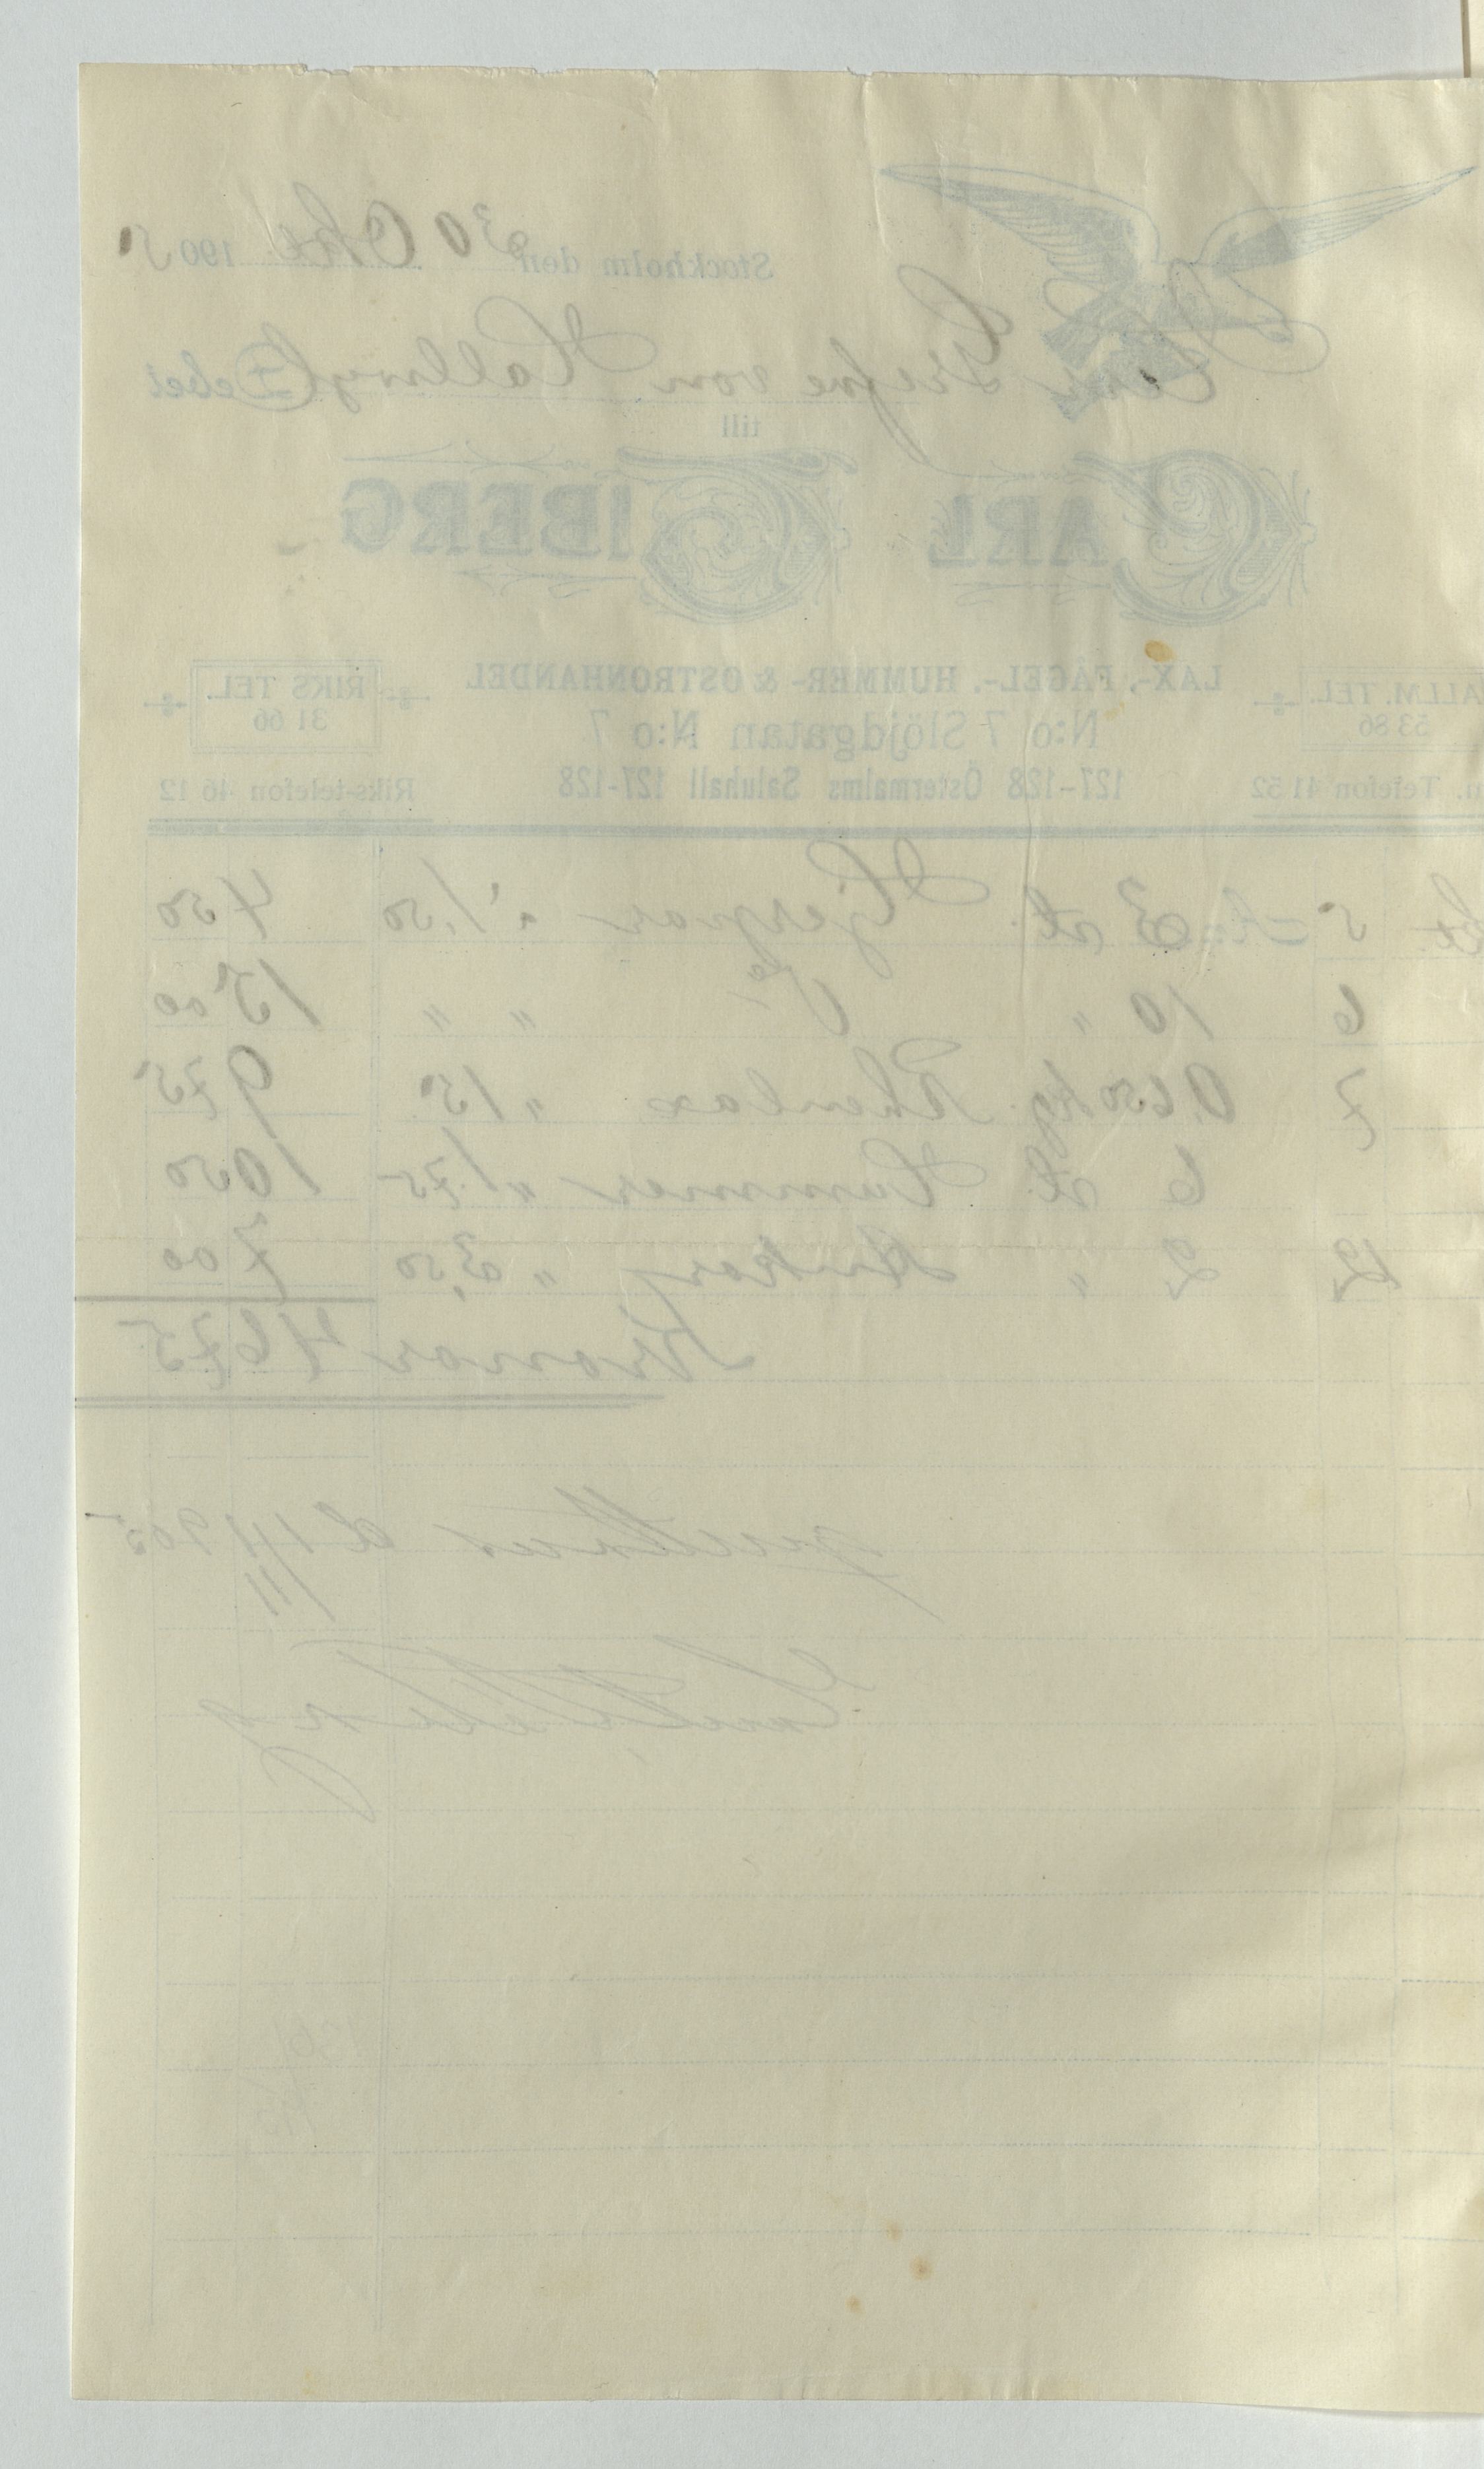 Stockholm den 30 Okt 1905
Grefve von Hallwyl Debet
till
CARL TIBERG
LAX-, FÅGEL-, HUMMER- & OSTRONHANDEL
ALLM. TEL. 53 86
RIKS TEL. 31 66
N:o 7 Slöjdgatan N:o 7
127-128 Östermalms Saluhall 127-128
Telefon 41 52
Riks-telefon 46 12
Okt. 5 3 st. Hjerpar à 1,50 4 50
6 10 " " " 15 00
7 0,650 kg. Rhenlax " 15 9 75
6 st Hummer " 1.75 10 50
12 2 " " 3,50 7 00
Kronor 46 75
qvitteras d 1/11 1905